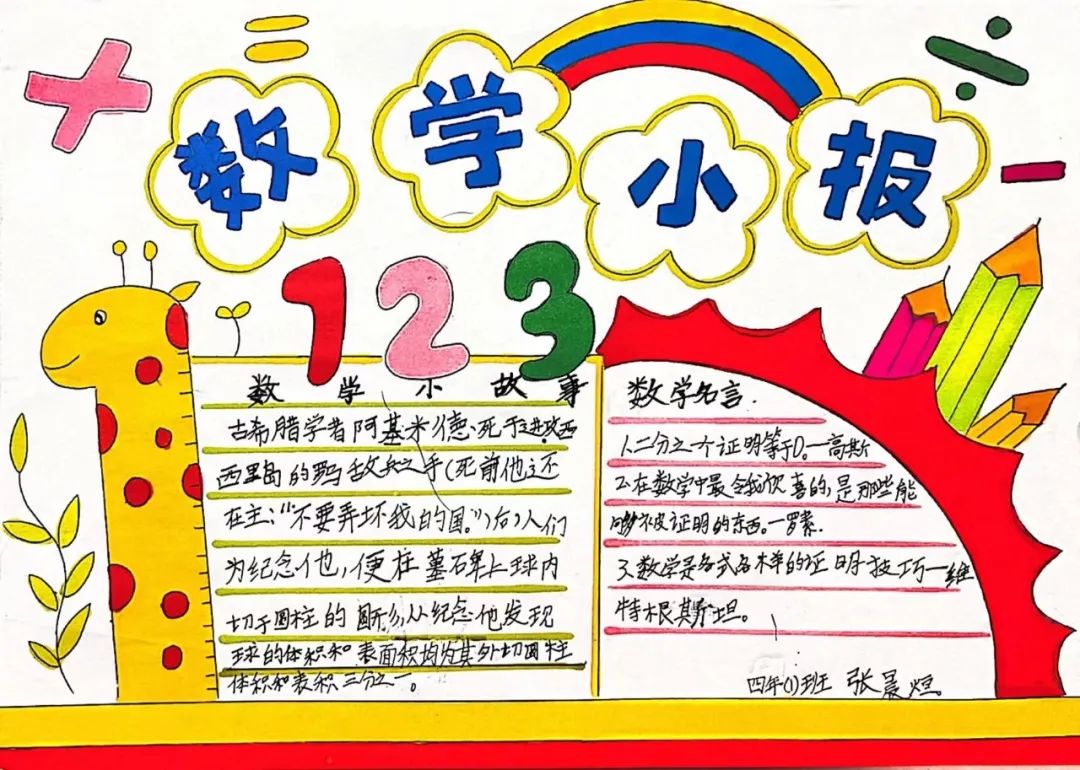 数学小报
123
数学小故事
古希腊学者阿基米德死于进攻西
西里岛的罗马敌兵之手(死前他还
在主:“不要弄坏我的圆。”)后,人们
为纪念他,便在墓石碑上球内
切于圆柱的图形,以纪念他发现
球的体积和表面积均为其外切圆柱
体积和表积三分之一。
数学名言.
1.二分之一个证明等于0。—高斯
2.在数学中最令我欣喜的,是那些能
够被证明的东西。—罗素.
3.数学是各式各样的证明技巧—维
特根斯坦。
四年(1)班 张晨烜